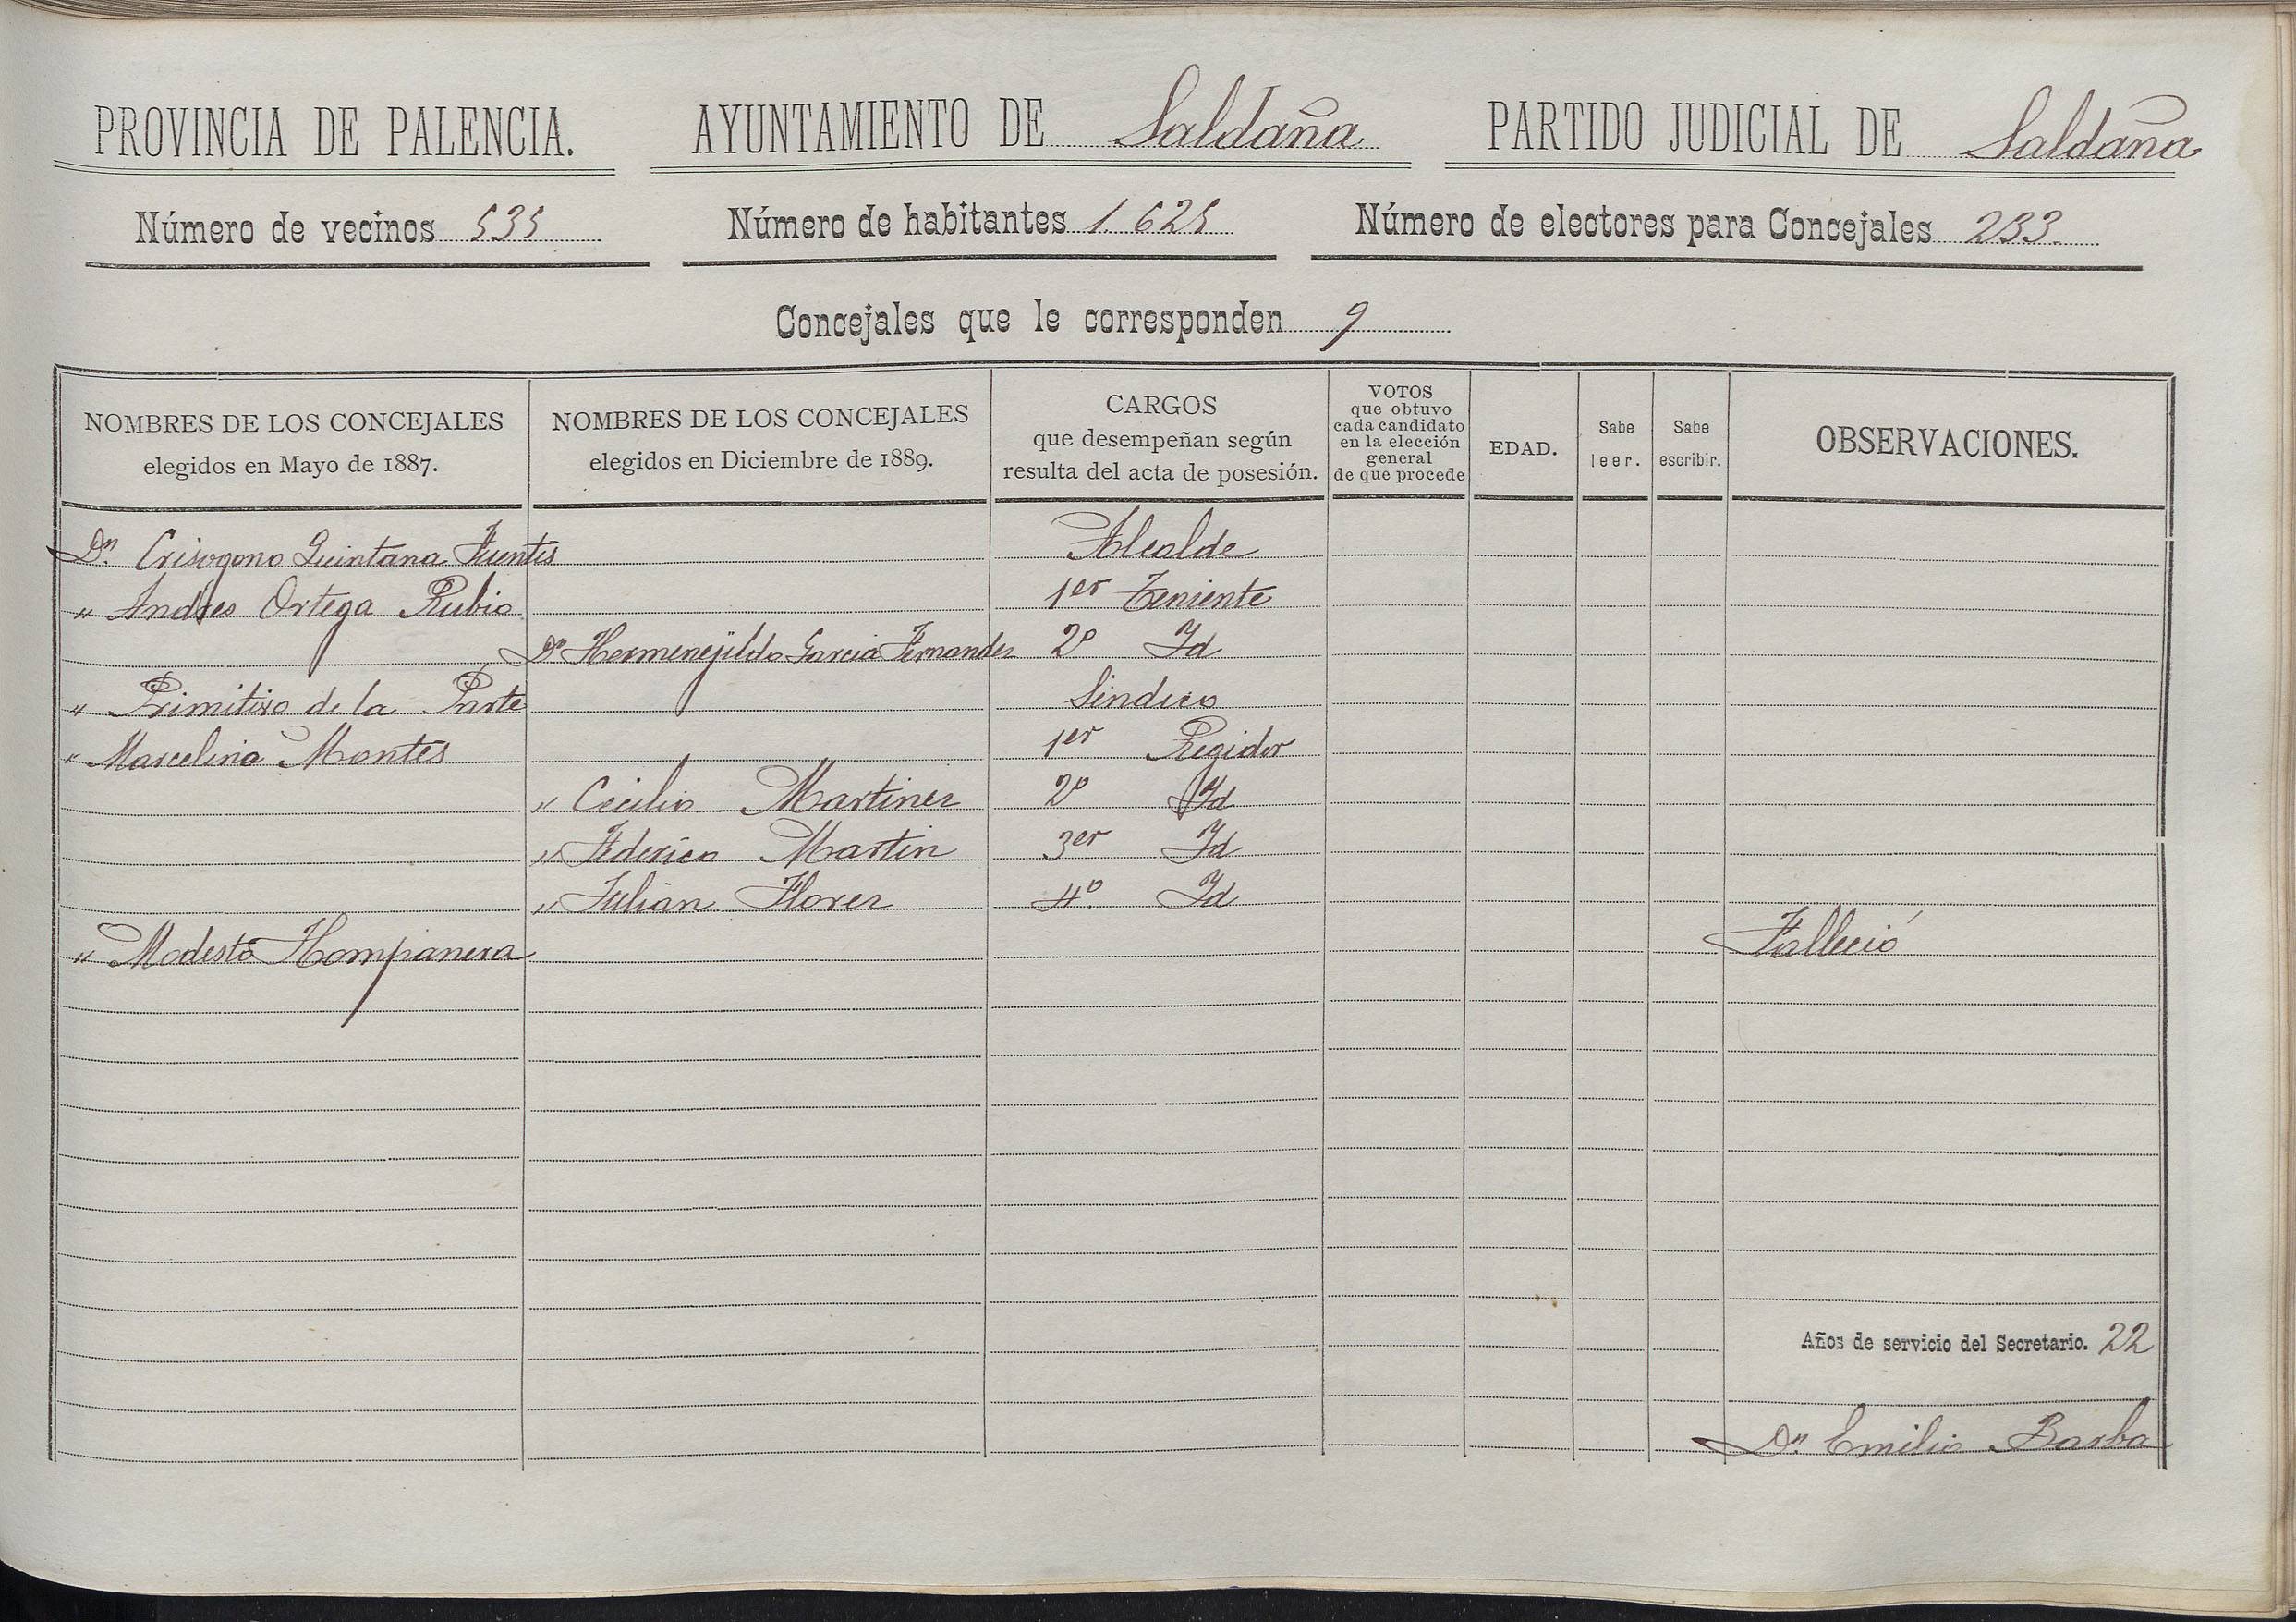 PROVINCIA DE PALENCIA. AYUNTAMIENTO DE Saldaña PARTIDO JUDICIAL DE Saldaña
Número de vecinos 535 Número de habitantes 1.625 Número de electores para Concejales 233.
Concejales que le corresponden 9
NOMBRES DE LOS CONCEJALES
elegidos en Mayo de 1887.
NOMBRES DE LOS CONCEJALES
elegidos en Diciembre de 1889.
CARGOS
que desempeñan según
resulta del acta de posesión.
VOTOS
que obtuvo
cada candidato
en la elección
general
de que procede
EDAD.
Sabe
leer.
Sabe
escribir.
OBSERVACIONES.
Dn. Crisogono Quintana Fuentes Alcalde
" Andres Ortega Rubio 1er Teniente
Dn Hermenejildo Garcia Fernandez 2º Id
" Primitivo de la Parte Sindico
" Marcelino Montes 1er Regidor
" Cecilio Martinez 2º Id
" Federico Martin 3er Id
" Julian Florez 4º. Id
" Modesto Hompanera Falleció
Años de servicio del Secretario. 22
Dn. Emilio Barba